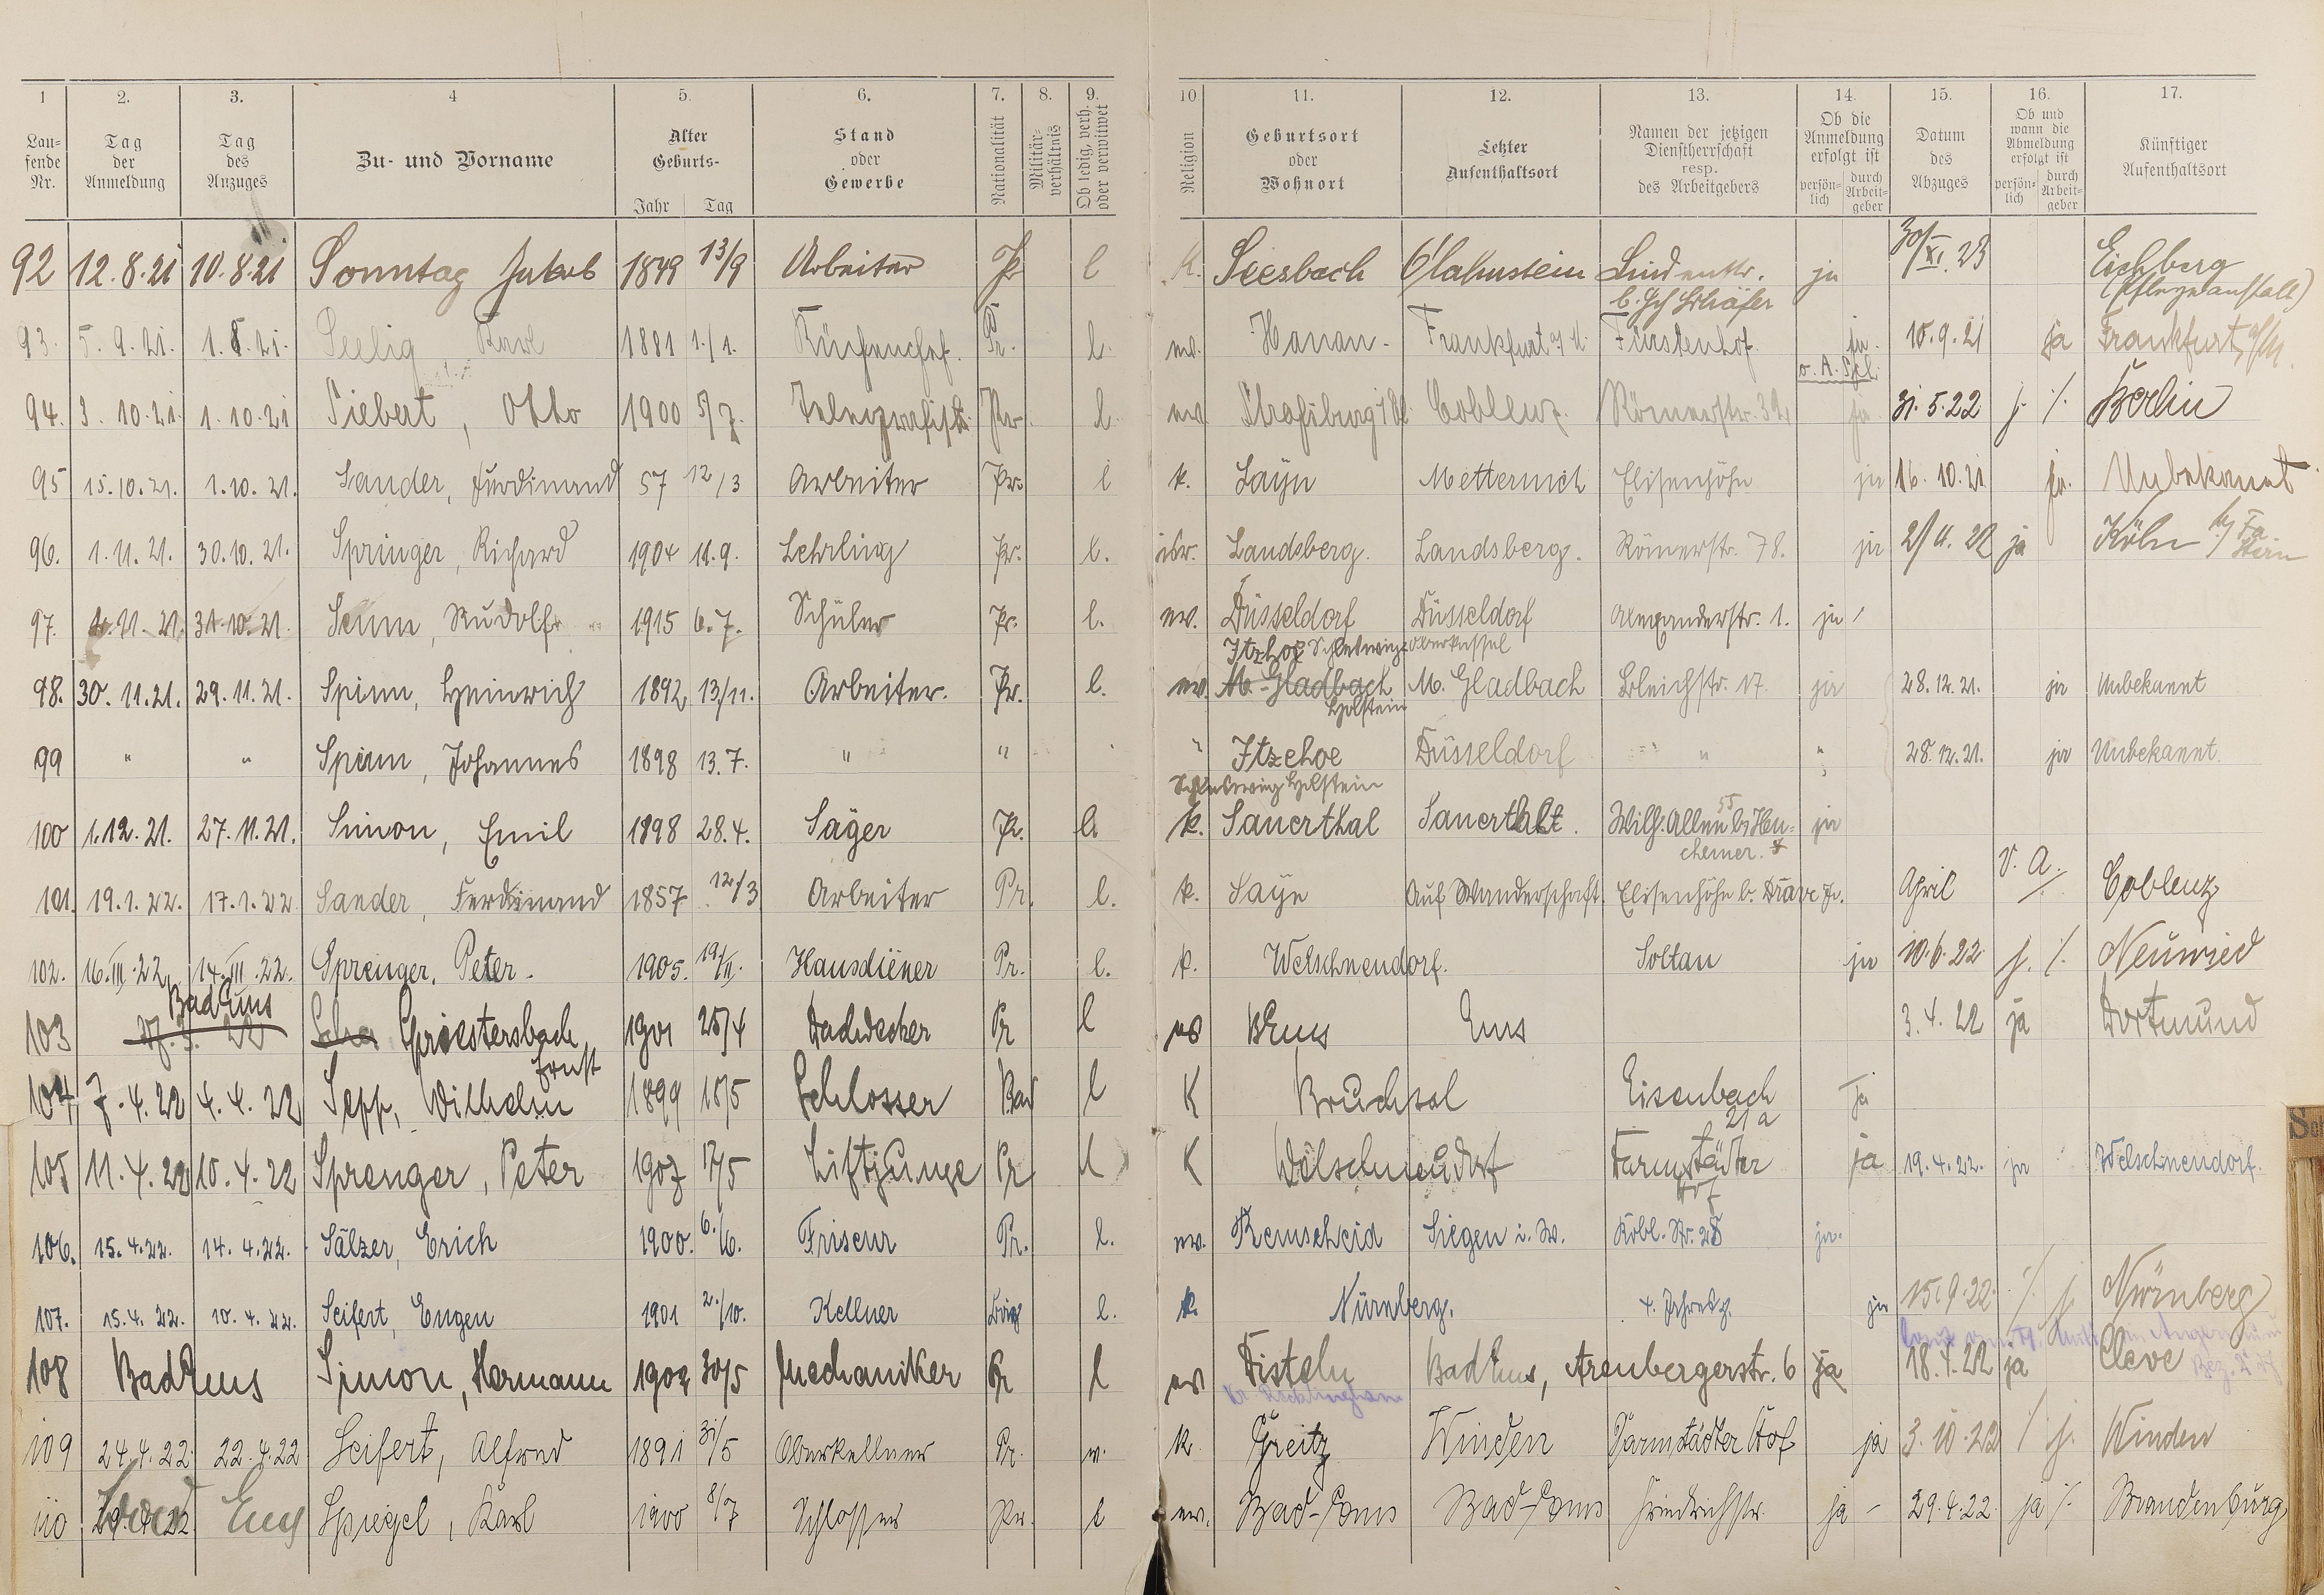 1 2. 3. 4 5. 6. 7. 8. 9. 10. 11. 12. 13. 14. 15. 16. 17.
Laufende Nr. Tag der Anmeldung Tag des Anzuges Zu- und Vorname Alter Geburts- Jahr Tag Stand oder Gewerbe Nationalität Militärverhältnis Ob ledig, verh. oder verwitwet Religion Geburtsort oder Wohnort Letzter Aufenthaltsort Namen der jetzigen Dienstherrschaft resp. des Arbeitgebers Ob die Anmeldung erfolgt ist persönlich durch Arbeitgeber Datum des Abzuges Ob und wann die Abmeldung erfolgt ist persönlich durch Arbeitgeber Künftiger Aufenthaltsort
92 12.8.21 10.8.21 Sonntag Jakob 1849 13/9 Arbeiter Pr l K. Seesbach O/Lahnstein Lindenstr. ja 30/XI.23 Eichberg
(Pflegeanstalt)
93. 5.9.21. 1.8.21. Seelig, Karl 1881 1./1. Küchenchef. Pr. l. ev. Hanau. Frankfurt a/M. Fürstenhof. ja. 10.9.21 ja Frankfurt a/M.
94. 3.10.21. 1.10.21 Siebert, Otto 1900 5/7. Telegrafist. Pr. l. ev. Straßburg Coblenz. Römerstr. 32, ja 31.5.22 j. /. Berlin
95 15.10.21. 1.10.21. Sander, Ferdinand 57 12/3 Arbeiter Pr. l k. Layn Metternich Elisenhöhe ja 16.10.21 ja. Unbekannt
96. 1.11.21. 30.10.21. Springer, Richard 1904 11.9. Lehrling Pr. l. isr. Landsberg. Landsberg. Römerstr. 78. ja 2/11.22 ja Köln b/ Fa Stern
97. 1.11.21. 31.10.21. Senn, Rudolf 1915 6.7. Schüler Pr. l. ev. Düsseldorf Düsseldorf Alexanderstr. 1. ja
Itzhoe Schleswig- Oberkassel
98. 30.11.21. 29.11.21. Spinn, Heinrich 1892 13/11. Arbeiter. Pr. l. ev. M.-Gladbach M. Gladbach Bleichstr. 17. ja 28.12.21. ja Unbekannt
Holstein
99 " " Spinn, Johannes 1898 13.7. " " " Itzehoe Düsseldorf " " 28.12.21. ja Unbekannt.
Schleswig Holstein
100 1.12.21. 27.11.21. Simon, Emil 1898 28.4. Säger Pr. l. k. Sauerthal Sauerthal. Wilh. Allee 55 b/ Heu- ja
chemer.
101. 19.1.22. 17.1.22 Sander, Ferdinand 1857 12/3 Arbeiter Pr. l. k. Sayn Auf Wanderschaft. Elisenhöhe b. April v. A. /. Coblenz
102. 16.III.22 14.III.22. Sprenger, Peter. 1905. 19/III. Hausdiener Pr. l. k. Welschneudorf. Soltau ja 10.6.22 j. /. Neuwied
Bad Ems
103 27.3.22 Griestersbach 1901 25/4 Dachdecker Pr l ev B Ems Ems 3.4.22 ja Dortmund
Ernst
104 7.4.22 4.4.22 Sepp, Wilhelm 1899 18/5 Schlosser Bad l K Bruchsal Eisenbach ja
21a
105 11.4.22 10.4.22 Sprenger, Peter 1907 17/5 Liftjunge Pr l K Wölschneudorf Darmstädter ja 19.4.22. ja Welschneudorf.
Hof
106. 15.4.22. 14.4.22. Sälzer, Erich 1900. 6./6. Friseur Pr. l. ev. Remscheid Siegen i. W. Kobl. Str. 28 ja.
107. 15.4.22. 10.4.22. Seifert, Eugen 1901 2./10. Kellner l. k. Nürnberg. 4. Jahresz. ja 15.9.22. /. j. Nürnberg
108 Bad Ems Simon, Hermann 1902 30/5 Mechaniker Pr l ev Disteln Bad Ems, Arenbergerstr. 6 ja 18.4.22 ja Cleve
Kr. Recklinghsn
109 24.4.22 22.4.22 Seifert, Alfred 1891 31/5 Oberkellner Pr. v. k. Greitz Winden Darmstädter Hof ja 3.10.22 / j. Winden
110 29.4.22 Bad Ems Spiegel, Karl 1900 8/7 Schlosser Pr. l ev. Bad-Ems Bad-Ems Friedrichstr. ja - 29.4.22 ja /. Brandenburg